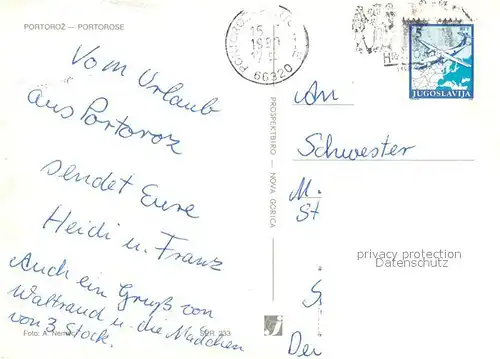 PORTOROŽ — PORTOROSE
Vom Urlaub
aus Portoroz
sendet Eure
Heidi u. Franz
Auch ein Gruß von
Waltraud u. die Mädchen
von 3. Stock.
Foto: A. Nemec
SER. 233
PROSPEKTBIRO — NOVA GORICA
66320
5
JUGOSLAVIJA
An
Schwester
M.
St
privacy protection
Datenschutz